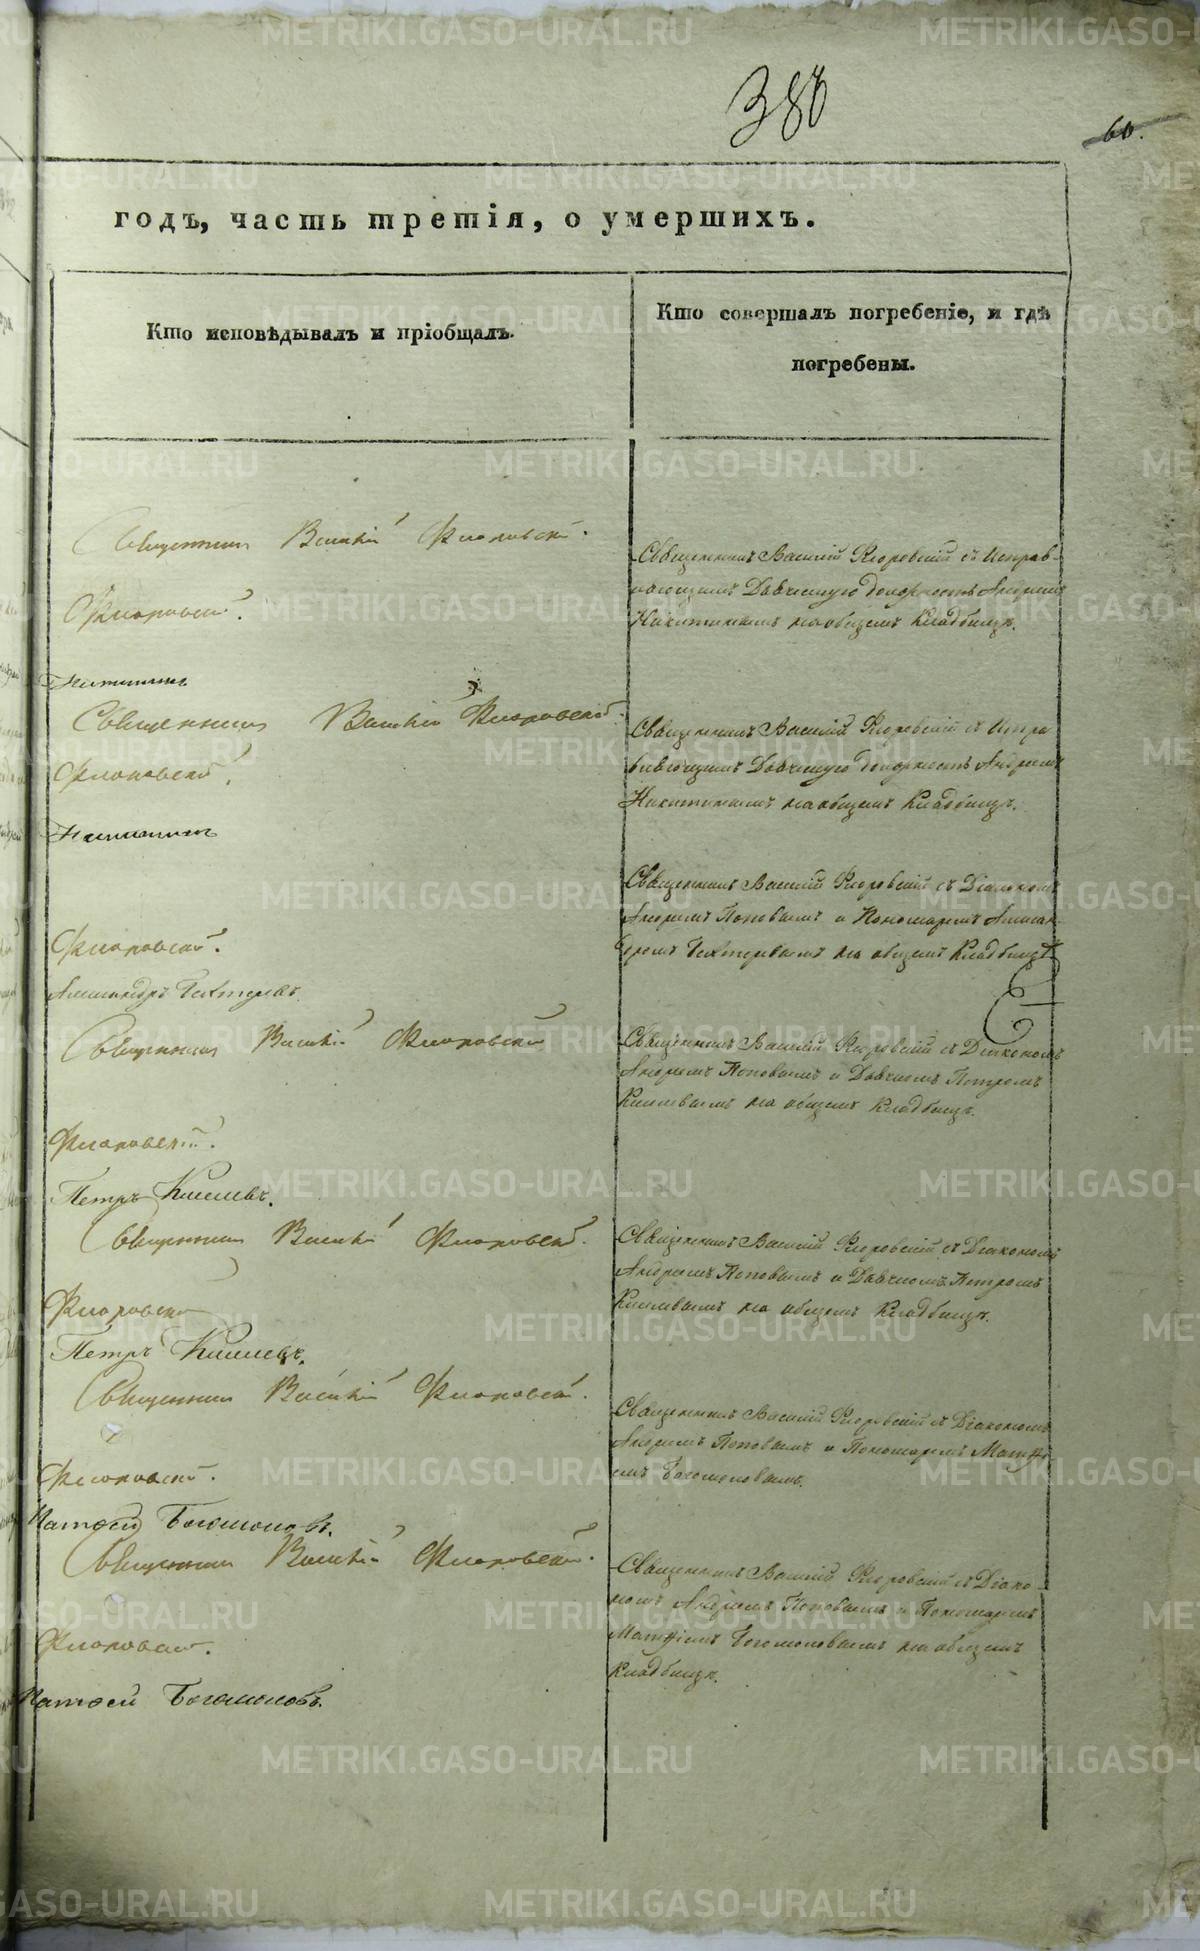 386
60.
годъ, часть третія, о умершихъ.
Кто исповѣдывалъ и пріобщалъ.
Кто совершалъ погребеніе, и гдѣ
погребены.
Священникъ Василій Флоровскій.
Флоровскій.
Никитинъ
Священникъ Василій Флоровскій
Флоровскій.
Никитинъ
Флоровскій.
Александръ Бехтеревъ.
Священникъ Василій Флоровскій
Флоровскій.
Петръ Киселевъ.
Священникъ Василій Флоровскій.
Флоровскій
Петръ Киселевъ.
Священникъ Василій Флоровскій.
Флоровскій.
Матѳей Богомоловъ.
Священникъ Василій Флоровскій.
Флоровскій.
Матѳей Богомоловъ.
Священникъ Василій Флоровскій съ Исправ-
ляющимъ Дьяческую должность Андреемъ
Никитинымъ на общемъ Кладбищѣ.
Священникъ Василій Флоровскій съ Испра
вляющимъ Дьяческую должность Андреемъ
Никитинымъ на общемъ Кладбищѣ.
Священникъ Василій Флоровскій съ Діакономъ
Андреемъ Поповымъ и Пономаремъ Алексан-
дромъ Бехтеревымъ на общемъ Кладбищѣ
Священникъ Василій Флоровскій съ Діакономъ
Андреемъ Поповымъ и Дьячкомъ Петромъ
Киселевымъ на общемъ Кладбищѣ.
Священникъ Василій Флоровскій съ Діакономъ
Андреемъ Поповымъ и Дьячкомъ Петромъ
Киселевымъ на общемъ Кладбищѣ.
Священникъ Василій Флоровскій съ Діакономъ
Андреемъ Поповымъ и Пономаремъ Матѳе
емъ Богомоловымъ.
Священникъ Василій Флоровскій съ Діако-
номъ Андреемъ Поповымъ и Пономаремъ
Матѳіемъ Богомоловымъ на общемъ
Кладбищѣ.
METRIKI.GASO-URAL.RU